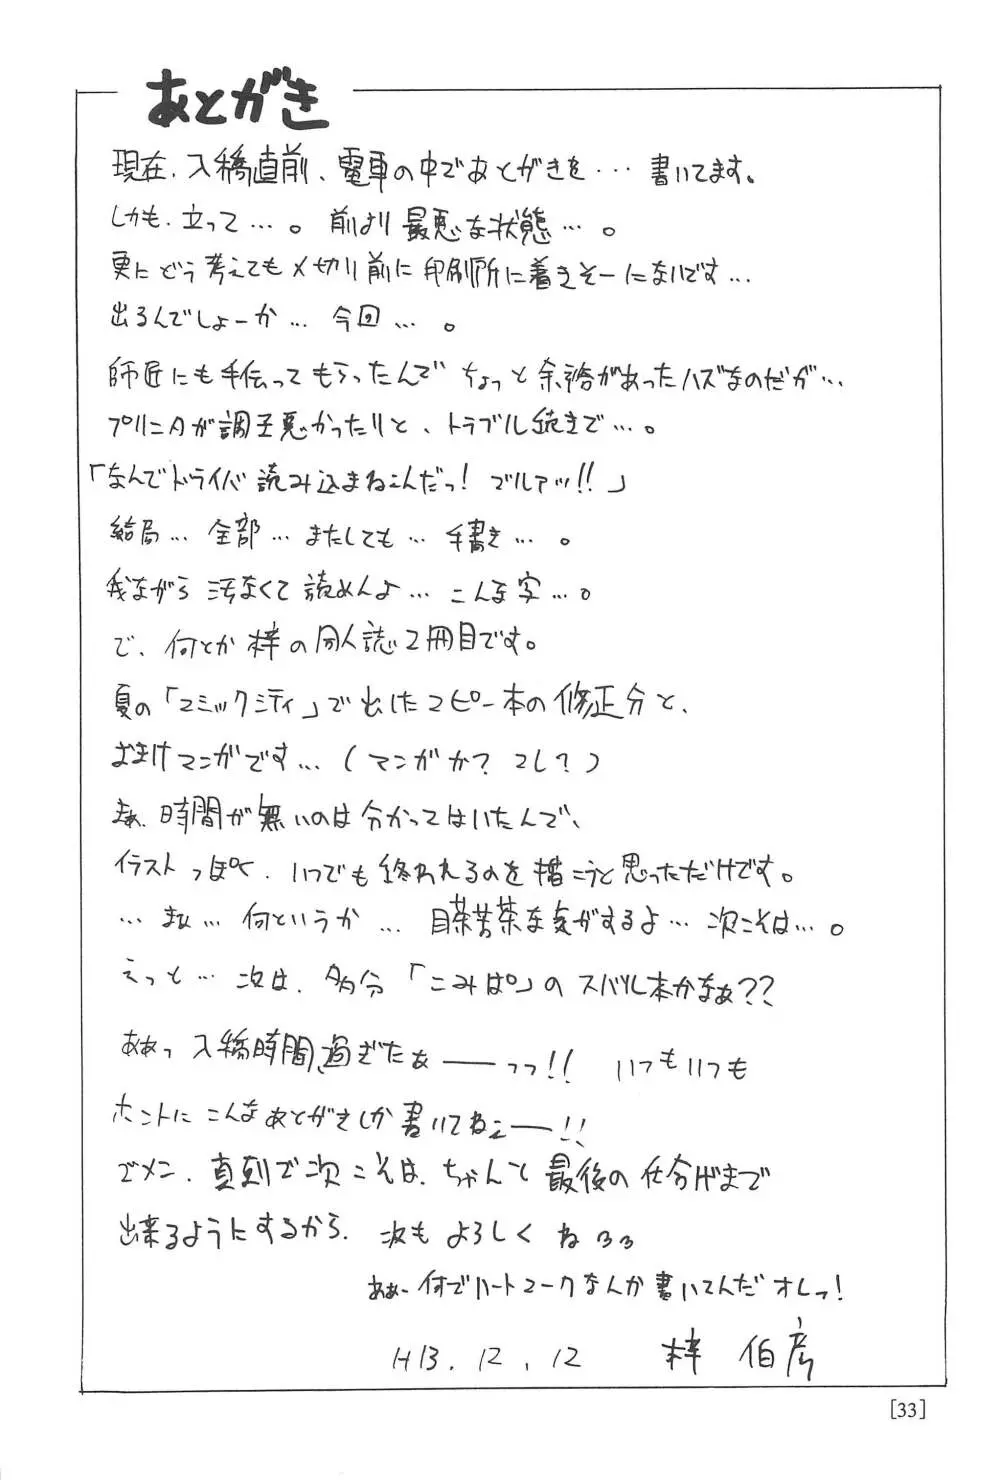 あとがき
現在、入稿直前、電車の中であとがきを・・・書いてます。
しかも、立って・・・。前より最悪な状態・・・。
更にどう考えても〆切り前に印刷所に着きそーにないです・・・
出るんでしょーか・・・今回・・・。
師匠にも手伝ってもらったんでちょっと余裕があったハズなのだが・・・
プリンタが調子悪かったりと、トラブル続きで・・・。
「なんでドライバ読み込まねェんだっ！ブルアッッ!!」
結局・・・全部・・・またしても・・・手書き・・・。
我ながら汚なくて読めんよ・・・こんな字・・・。
で、何とか梓の同人誌2冊目です。
夏の「コミックシティ」で出したコピー本の修正分と、
おまけマンガです・・・（マンガか？コレ？）
まぁ、時間が無いのは分かってはいたんで、
イラストっぽく、いつでも終われるのを描こうと思っただけです。
・・・まぁ・・・何というか・・・目茶苦茶な気がするよ・・・次こそは・・・。
えっと・・・次は、多分「こみパ」のスバル本かなぁ??
ああっ入稿時間、過ぎたぁーーっっ!! いつもいつも
ホントにこんなあとがきしか書いてねェーー!!
ゴメン、真剣で次こそは、ちゃんと最後の仕上げまで
出来るようにするから、次もよろしくね♡♡
ああー何でハートマークなんか書いてんだオレっ！
H13.12.12 梓 伯彦
[33]